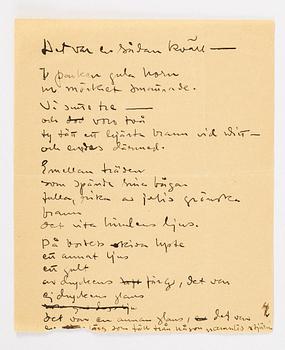 Det var en sådan kväll —
I parken gula horn
ur mörkret smattrade.
Vi sutto tre —
och vors två
ty tätt ett hjärta brann vid mitt —
och endes därmed.
Emellan träden
som spände sina bågar
fulla, rika av julis grönska
brann
det vita himlens ljus.
På bordets skiva lyste
ett annat ljus
ett gult
av dryckens färg, det var
ej dryckens glans
det var en annan glans, det var
som föll från någon